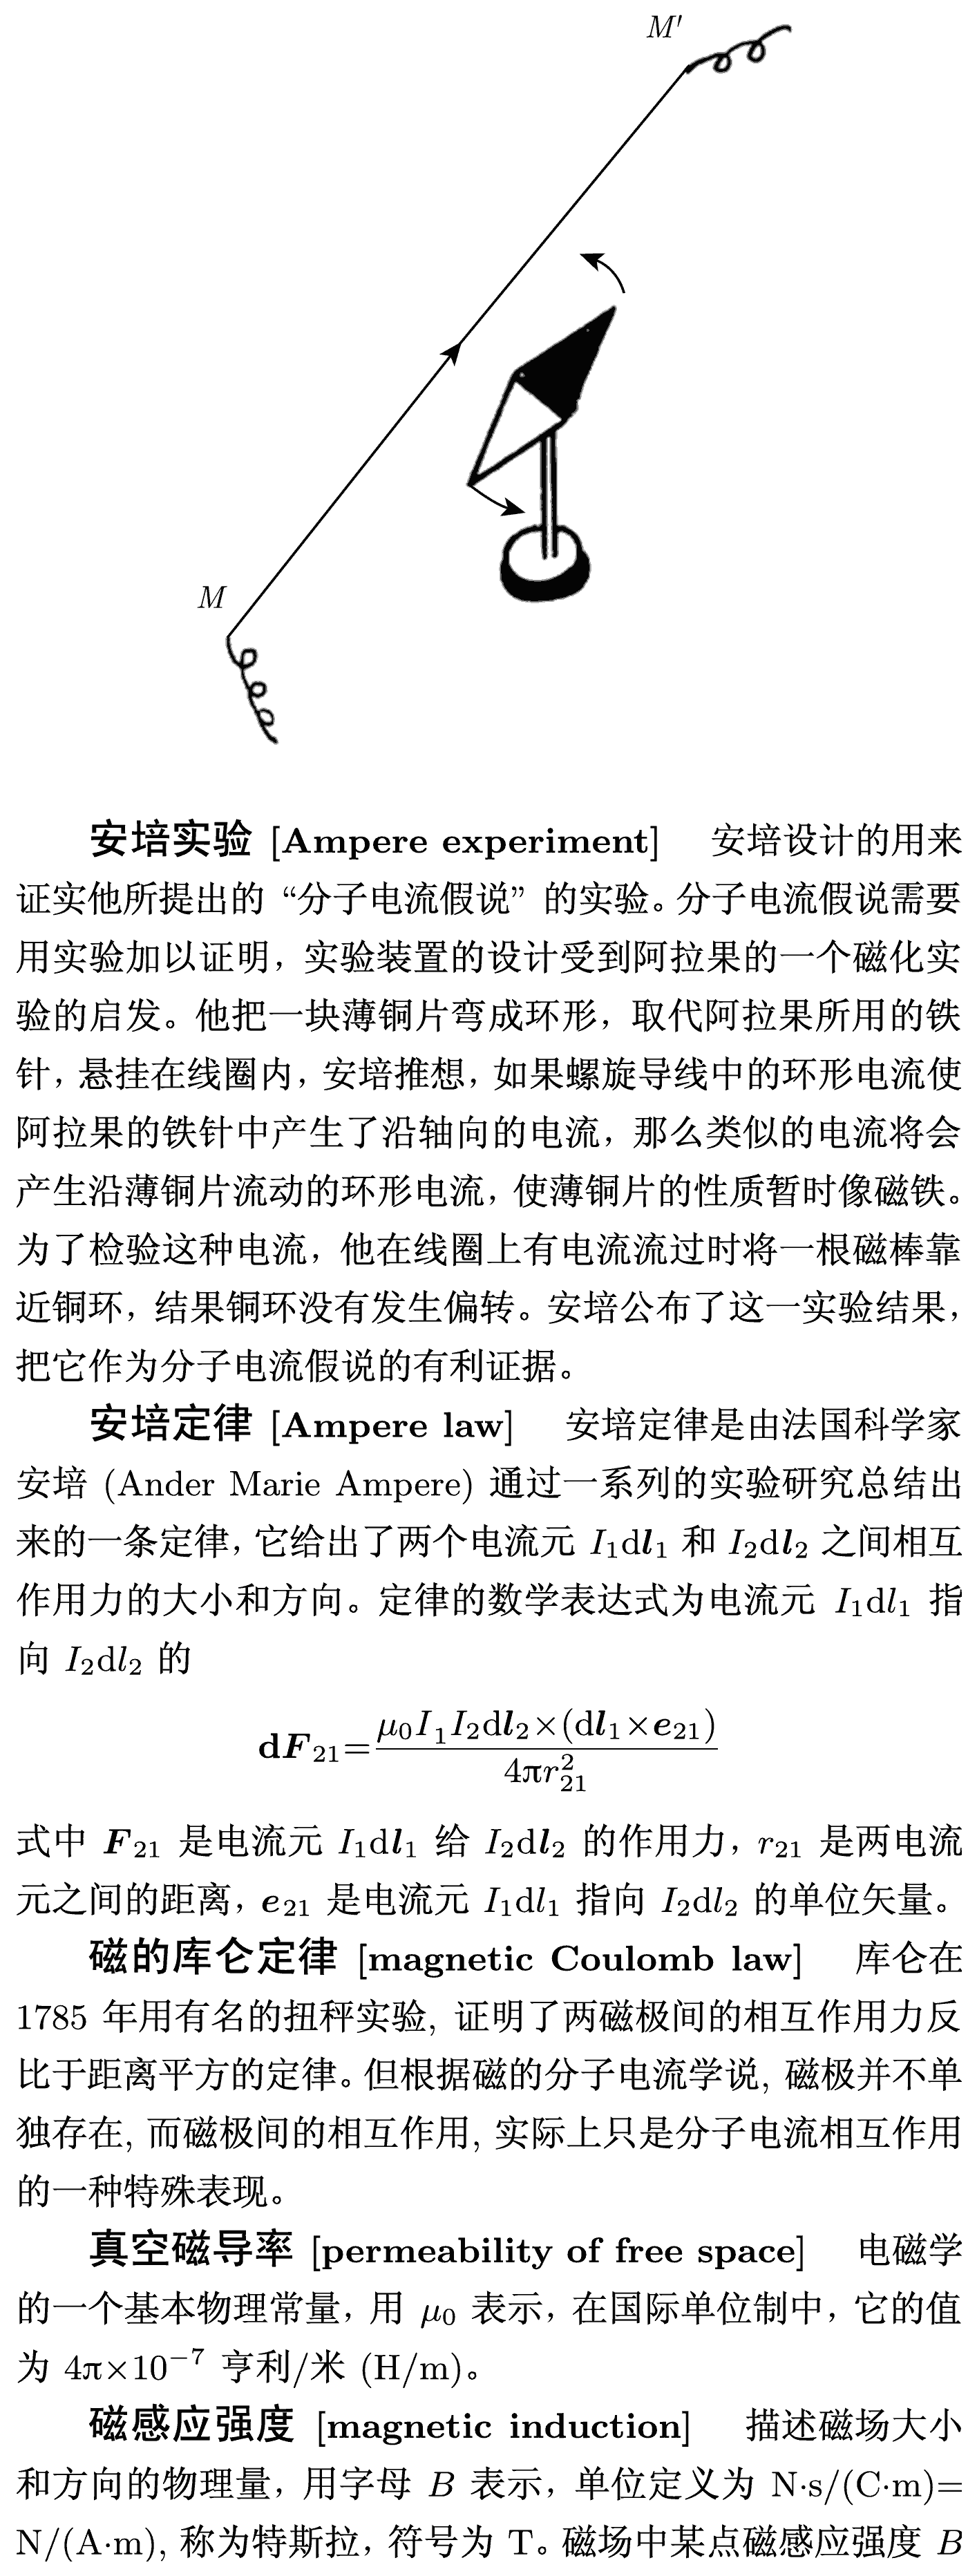 M′
M
安培实验 [Ampere experiment] 安培设计的用来
证实他所提出的 “分子电流假说” 的实验。分子电流假说需要
用实验加以证明，实验装置的设计受到阿拉果的一个磁化实
验的启发。他把一块薄铜片弯成环形，取代阿拉果所用的铁
针，悬挂在线圈内，安培推想，如果螺旋导线中的环形电流使
阿拉果的铁针中产生了沿轴向的电流，那么类似的电流将会
产生沿薄铜片流动的环形电流，使薄铜片的性质暂时像磁铁。
为了检验这种电流，他在线圈上有电流流过时将一根磁棒靠
近铜环，结果铜环没有发生偏转。安培公布了这一实验结果，
把它作为分子电流假说的有利证据。
安培定律 [Ampere law] 安培定律是由法国科学家
安培 (Ander Marie Ampere) 通过一系列的实验研究总结出
来的一条定律，它给出了两个电流元 I₁dl₁ 和 I₂dl₂ 之间相互
作用力的大小和方向。定律的数学表达式为电流元 I₁dl₁ 指
向 I₂dl₂ 的
dF₂₁=μ₀I₁I₂dl₂×(dl₁×e₂₁)/4πr₂₁²
式中 F₂₁ 是电流元 I₁dl₁ 给 I₂dl₂ 的作用力，r₂₁ 是两电流
元之间的距离，e₂₁ 是电流元 I₁dl₁ 指向 I₂dl₂ 的单位矢量。
磁的库仑定律 [magnetic Coulomb law] 库仑在
1785 年用有名的扭秤实验, 证明了两磁极间的相互作用力反
比于距离平方的定律。但根据磁的分子电流学说, 磁极并不单
独存在, 而磁极间的相互作用, 实际上只是分子电流相互作用
的一种特殊表现。
真空磁导率 [permeability of free space] 电磁学
的一个基本物理常量，用 μ₀ 表示，在国际单位制中，它的值
为 4π×10⁻⁷ 亨利/米 (H/m)。
磁感应强度 [magnetic induction] 描述磁场大小
和方向的物理量，用字母 B 表示，单位定义为 N·s/(C·m)=
N/(A·m), 称为特斯拉，符号为 T。磁场中某点磁感应强度 B